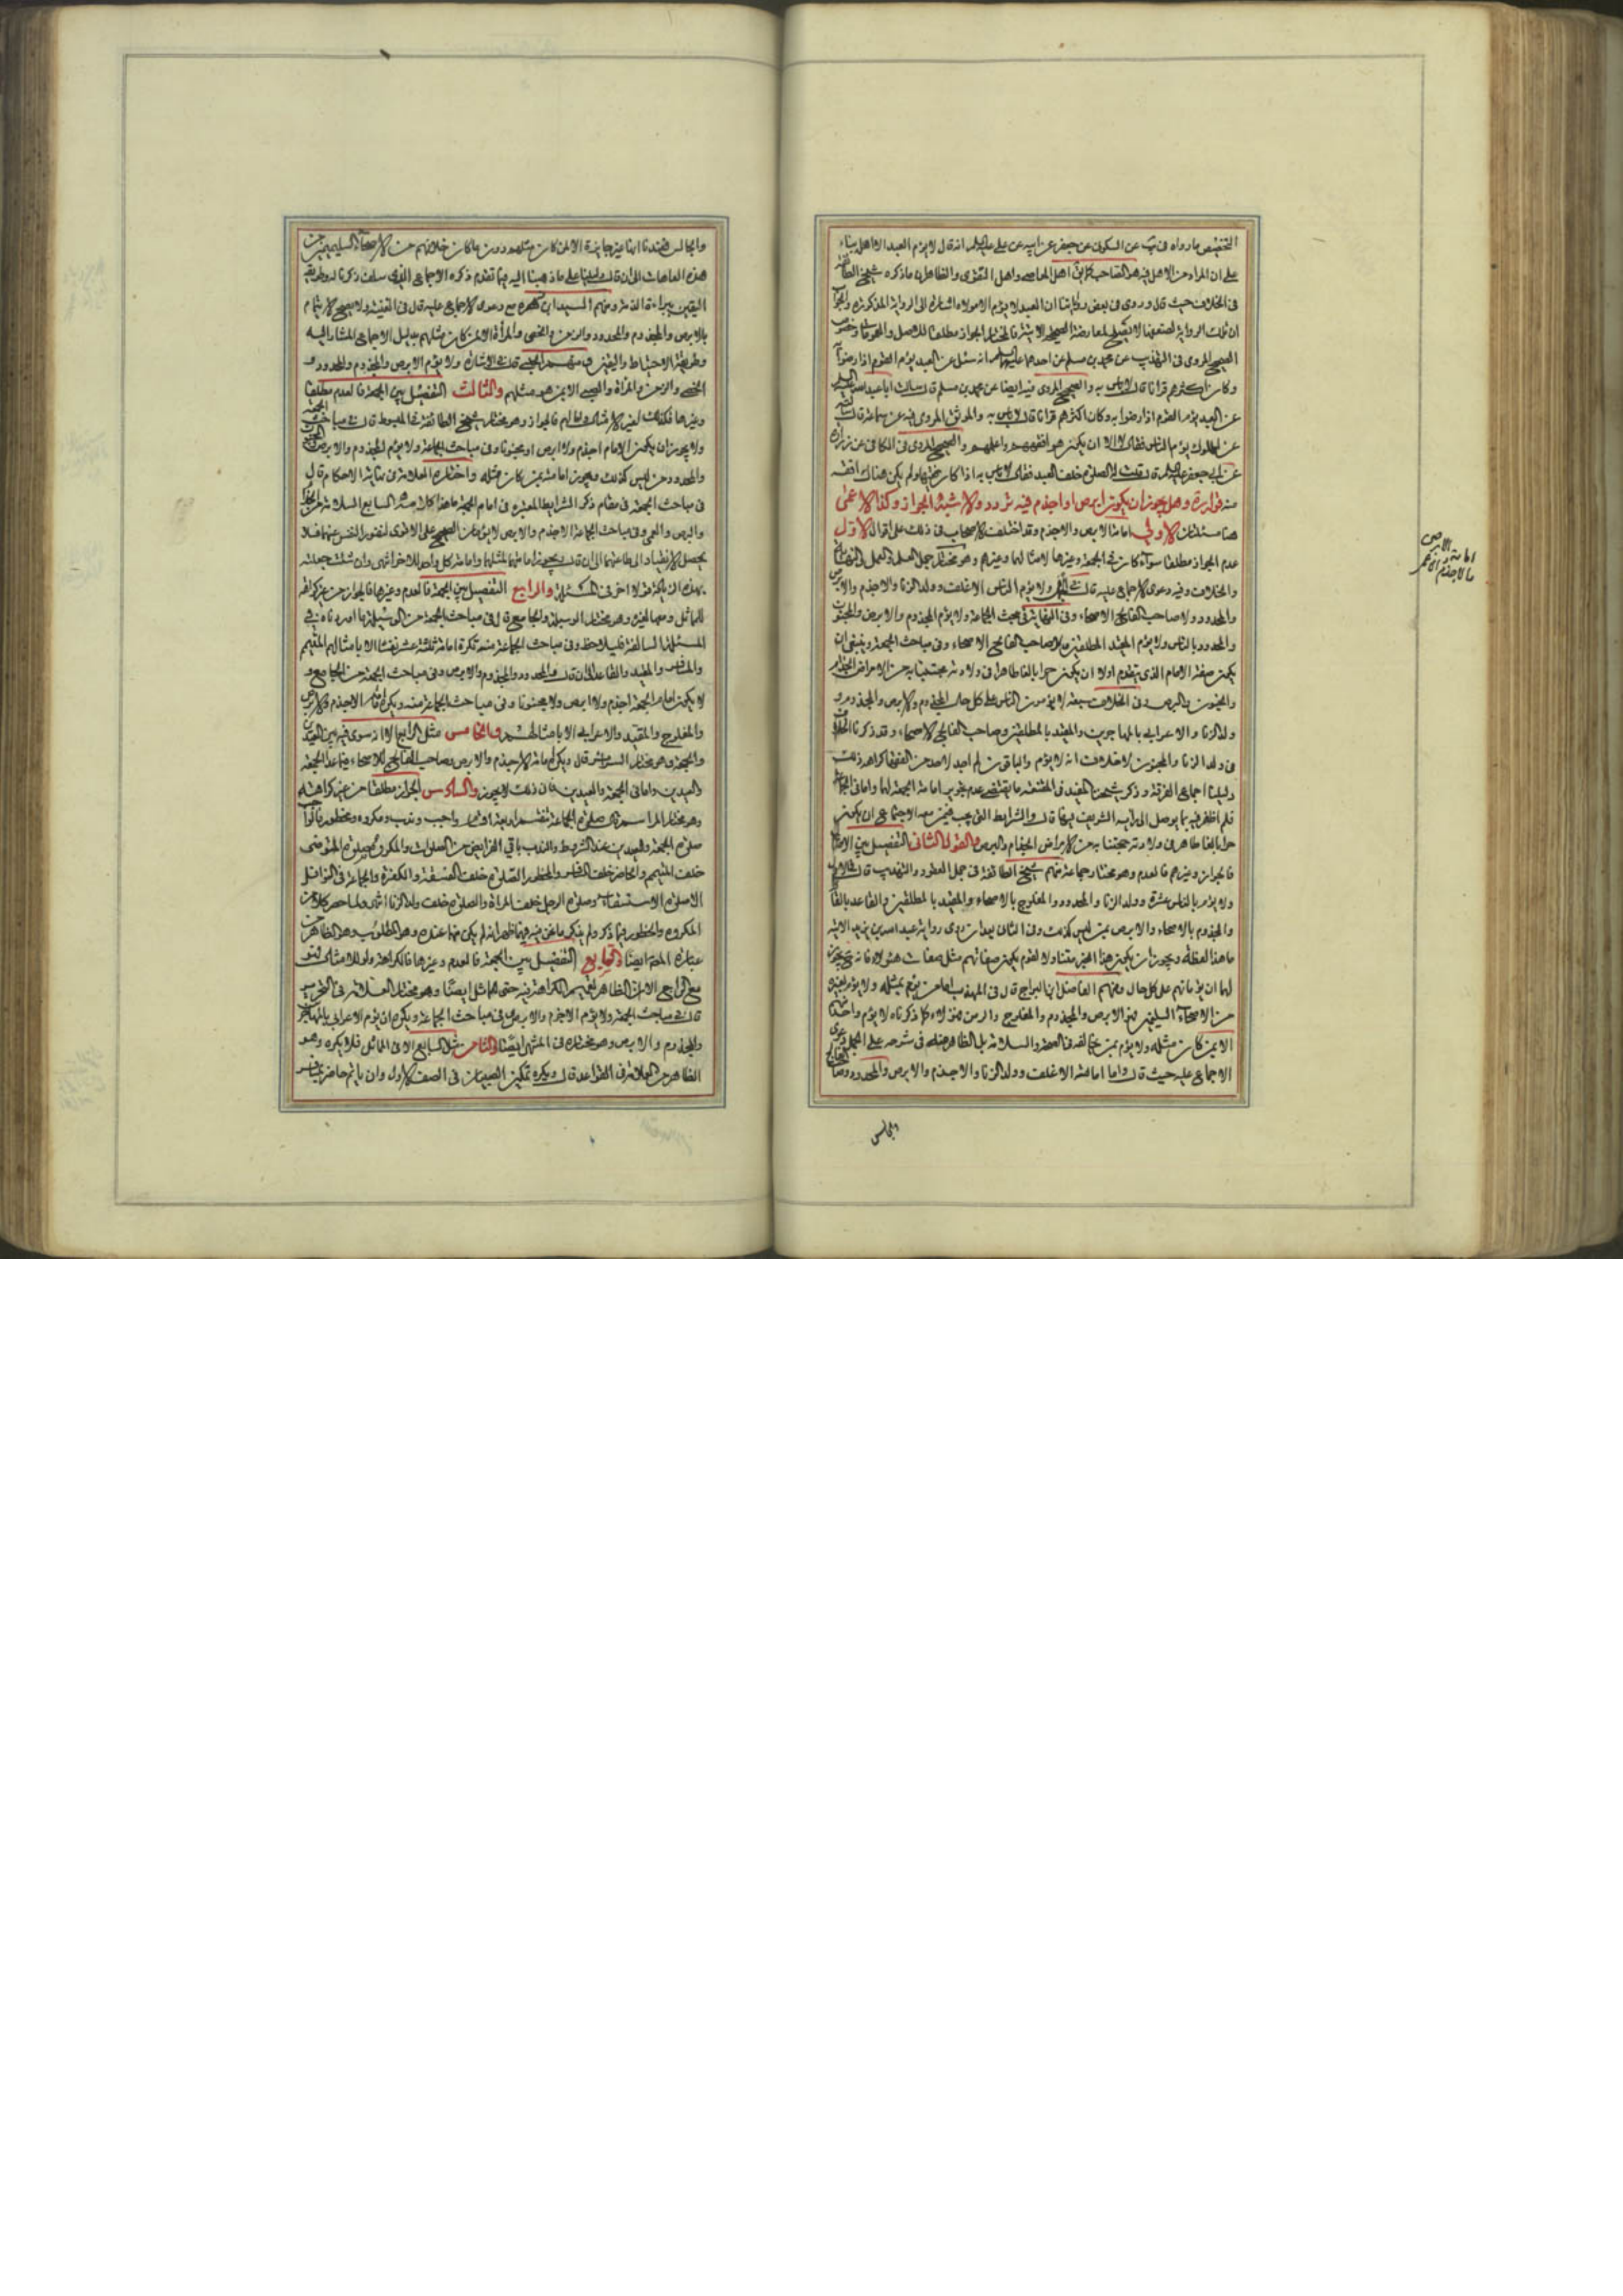 التخصيص ما رواه في يب عن السكوني عن جعفر عن ابيه عن علي عليه السلام انه قال لا يؤم العبد الا اهله بناء
على ان المراد من الاهل فيه هو الصاحب كما يق اهل المعاصي واهل التقوى والظاهر ان ما ذكره شيخ الطائفة
في الخلاف حيث قال وروى في بعض رواياتنا ان العبد لا يؤم الا مولاه اشارة الى الرواية المذكورة والجواب
ان تلك الرواية لضعفها لا تصلح لمعارضة الصحيح الاتية فالمختار الجواز مطلقا للاصل والعمومات وخصوص
الصحيح المروي في التهذيب عن محمد بن مسلم عن احدهما عليهما السلام انه سئل عن العبد يؤم القوم اذا رضوا به
وكان اكثرهم قرانا قال لا باس به والصحيح المروي فيه ايضا عن محمد بن مسلم قال سالت ابا عبد الله عليه السلام
عن العبد يؤم القوم اذا رضوا به وكان اكثرهم قرانا قال لا باس به والموثق المروي فيه عن سماعة قال سالته
عن المملوك يؤم الناس فقال لا الا ان يكون هو افقههم واعلمهم والصحيح المروي في الكافي عن زرارة
عن ابي جعفر عليه السلام قال قلت له الصلوة خلف العبد فقال لا باس به اذا كان فقيها ولم يكن هناك افقه
منه قوله ره وهل يجوز ان يكون ابرص او اجذم فيه تردد والاشبه الجواز وكذا الاعمى
هنا مسئلتان الاولى امامة الابرص والاجذم وقد اختلفت الاصحاب في ذلك على اقوال الاول
عدم الجواز مطلقا سواء كان في الجمعة وغيرها لامثالهما وغيرهم وهو مختار جمل العلم والعمل والنهاية
والخلاف وفيه دعوى الاجماع عليه قال في الجمل ولا يؤم الناس الاغلف وولد الزنا والاجذم والابرص
والمحدود ولا صاحب الفالج الاصحاء وفي النهاية في بحث الجماعة ولا يؤم المجذوم والابرص والمجنون
والمحدود بالناس ولا يؤم المقيد المطلقين ولا صاحب الفالج الاصحاء وفي مباحث الجمعة وينبغي ان
يكون صفة الامام الذي يتقدم اولا ان يكون حرا بالغا طاهرا في ولادته مجتنبا به من الامراض الجذام
والجنون والبرص وفي الخلاف سبعة لا يؤمون الناس على كل حال المجذوم والابرص والمجنون و
ولد الزنا والاعرابي بالمهاجرين والمقيد بالمطلقين وصاحب الفالج الاصحاء وقد ذكرنا الخلاف
في ولد الزنا والمجنون لا خلاف انه لا يؤم والباقون لم اجد لاحد من الفقهاء كراهة ذلك
دليلنا اجماع الفرقة وذكر شيخنا المفيد في المقنعة ما يقتضي عدم تجويز امامة الجمعة لهما واما في الجماعة
فلم اظفر فيه بما يوصل الى رايه الشريف فيها قال والشرايط التي يجب فيمن معه الاجتماع ان يكون
حرا بالغا طاهرا في ولادته مجتنبا به من الامراض الجذام والبرص والقول الثاني التفصيل بين الامثال
فالجواز وغيرهم فالعدم وهو مختار جماعة منهم شيخ الطائفة في جمل العقود والتهذيب قال في الاول
ولا يؤم بالناس عشرة وولد الزنا والمحدود والمفلوج بالاصحاء والمقيد بالمطلقين والقاعد بالقائم
والمجذوم بالاصحاء والابرص بمن ليس كذلك وفي الثاني بعد ان روى رواية عبد الله بن يزيد الاتية
ما هذا لفظه ويجوز ان يكون هذا الخبر متناولا لقوم يكون صفاتهم مثل صفات هؤلاء فانه يجوز
لهما ان يؤماهم على كل حال ومنهم الفاضل ابن البراج قال في المهذب اما من يؤم بمثله ولا يؤم بغيره
من الاصحاء السليمين فهو الابرص والمجذوم والمفلوج والزمن فهؤلاء كما ذكرناه لا يؤم واحد منهم
الا بمن كان مثله ولا يؤم بمن خالفه في الصحة والسلامة بل الظاهر منه في شرحه على الجمل دعوى
الاجماع عليه حيث قال واما امامة الاغلف وولد الزنا والاجذم والابرص والمحدود وصاحب الفالج
والجالس
امامة الابرص
والاجذم لغيرهم
والجالس فعندنا انها غير جايزة الا لمن كان مثلهم دون ما كان خلافهم من الاصحاء السليمين من
هذه العاهات الى ان قال دليلنا على ما ذهبنا اليه ما تقدم ذكره الاجماع الذي سلف ذكرنا له وطريقة
اليقين ببراءة الذمة ومنهم السيد ابن زهره مع دعوى الاجماع عليه قال في الغنية ولا يصح الايتمام
بالابرص والمجذوم والمحدود والزمن والخصي والمراة الا لمن كان مثلهم بدليل الاجماع المشار اليه
وطريقة الاحتياط واليقين ومنهم الحلبي قال في الاشارة ولا يؤم الابرص والمجذوم والمحدود و
الخصي والزمن والمراة والصبي الا بمن هو مثلهم والثالث التفصيل بين الجمعة فالعدم مطلقا
وغيرها فكذلك لغير الامثال ولها لهم فالجواز وهو مختار شيخ الطائفة في المبسوط قال في مباحث الجمعة
ولا يجوز ان يكون الامام اجذم ولا ابرص او مجنونا وفي مباحث الجماعة ولا يؤم المجذوم والابرص والمجنون
والمحدود من ليس كذلك ويجوز امامته بمن كان مثله واختاره العلامة في نهاية الاحكام قال
في مباحث الجمعة في مقام ذكر الشرايط المعتبرة في امام الجمعة ما هذا كلامه السابع السلامة من الجذام
والبرص والعمى وفي مباحث الجماعة الاجذم والابرص لا يؤمان الصحيح على الاقوى لنفور النفس عنهما فلا
يحصل الانقياد الى طاعتهما الى ان قال ويجوز امامتهما لمثلهما وامامة كل واحد للاخر انتهى وان شئت جعلته
بهذه الزيادة قولا اخر في المسئلة والرابع التفصيل بين الجمعة فالعدم وغيرها فالجواز من غير كراهة
للماثل ومعها لغيره وهو مختار الوسيلة والجامع قال في مباحث الجمعة من الوسيلة ما اوردناه في
المسئلة السالفة فليلاحظ وفي مباحث الجماعة منه تكره امامة ثلثة عشر نفسا الا بامثالهم المتيمم
والمسافر والمقيد والقاعد الى ان قال والمحدود والمجذوم والابرص وفي مباحث الجمعة من الجامع و
لا يكون امام الجمعة اجذم ولا ابرص ولا مجنونا وفي مباحث الجماعة منه ويكره امامة الاجذم والابرص
والمفلوج والمقيد والاعرابي الا بامثالهم والخامس مثل الرابع الا انه سوى فيه بين العيدين
والجمعة وهو مختار السرائر قال ويكره امامة الاجذم والابرص وصاحب الفالج للاصحاء فيما عدا الجمعة
والعيدين واما في الجمعة والعيدين فان ذلك لا يجوز والسادس الجواز مطلقا من غير كراهة
وهو مختار المراسم قال صلوة الجماعة تنقسم اربعة اقسام واجب وندب ومكروه ومحظور فالواجب
صلوة الجمعة والعيدين عند الشريط والندب باقي الفرايض من الصلوات والمكروه صلوة المتوضي
خلف المتيمم والحاضر خلف المسافر والمحظور الصلوة خلف الفسقة والكفرة والجماعة في النوافل
الا صلوة الاستسقاء وصلوة الرجل خلف المراة والصلوة خلف ولد الزنا انتهى ولما حصر كلا من
المكروه والمحظور فيما ذكر ولم يذكر ما نحن فيه فيما ظهر انه لم يكن منها عنده وهو المطلوب وهو الظاهر من
عبارة المتن ايضا والسابع التفصيل بين الجمعة فالعدم وغيرها فالكراهة ولو للامثال فهو
مع الرابع الا ان الظاهر تعميم الكراهة فيه حتى للماثل ايضا وهو مختار العلامة في التحرير
قال في مباحث الجمعة ولا يؤم الاجذم والابرص وفي مباحث الجماعة ويكره ان يؤم الاعرابي بالمهاجر
والمجذوم والابرص وهو مختاره في المنتهى ايضا والثامن مثل السابع الا في الماثل فلا يكره وهو
الظاهر من العلامة في القواعد قال ويكره تمكين الصبيان في الصف الاول وان ياتم حاضر بمسافر